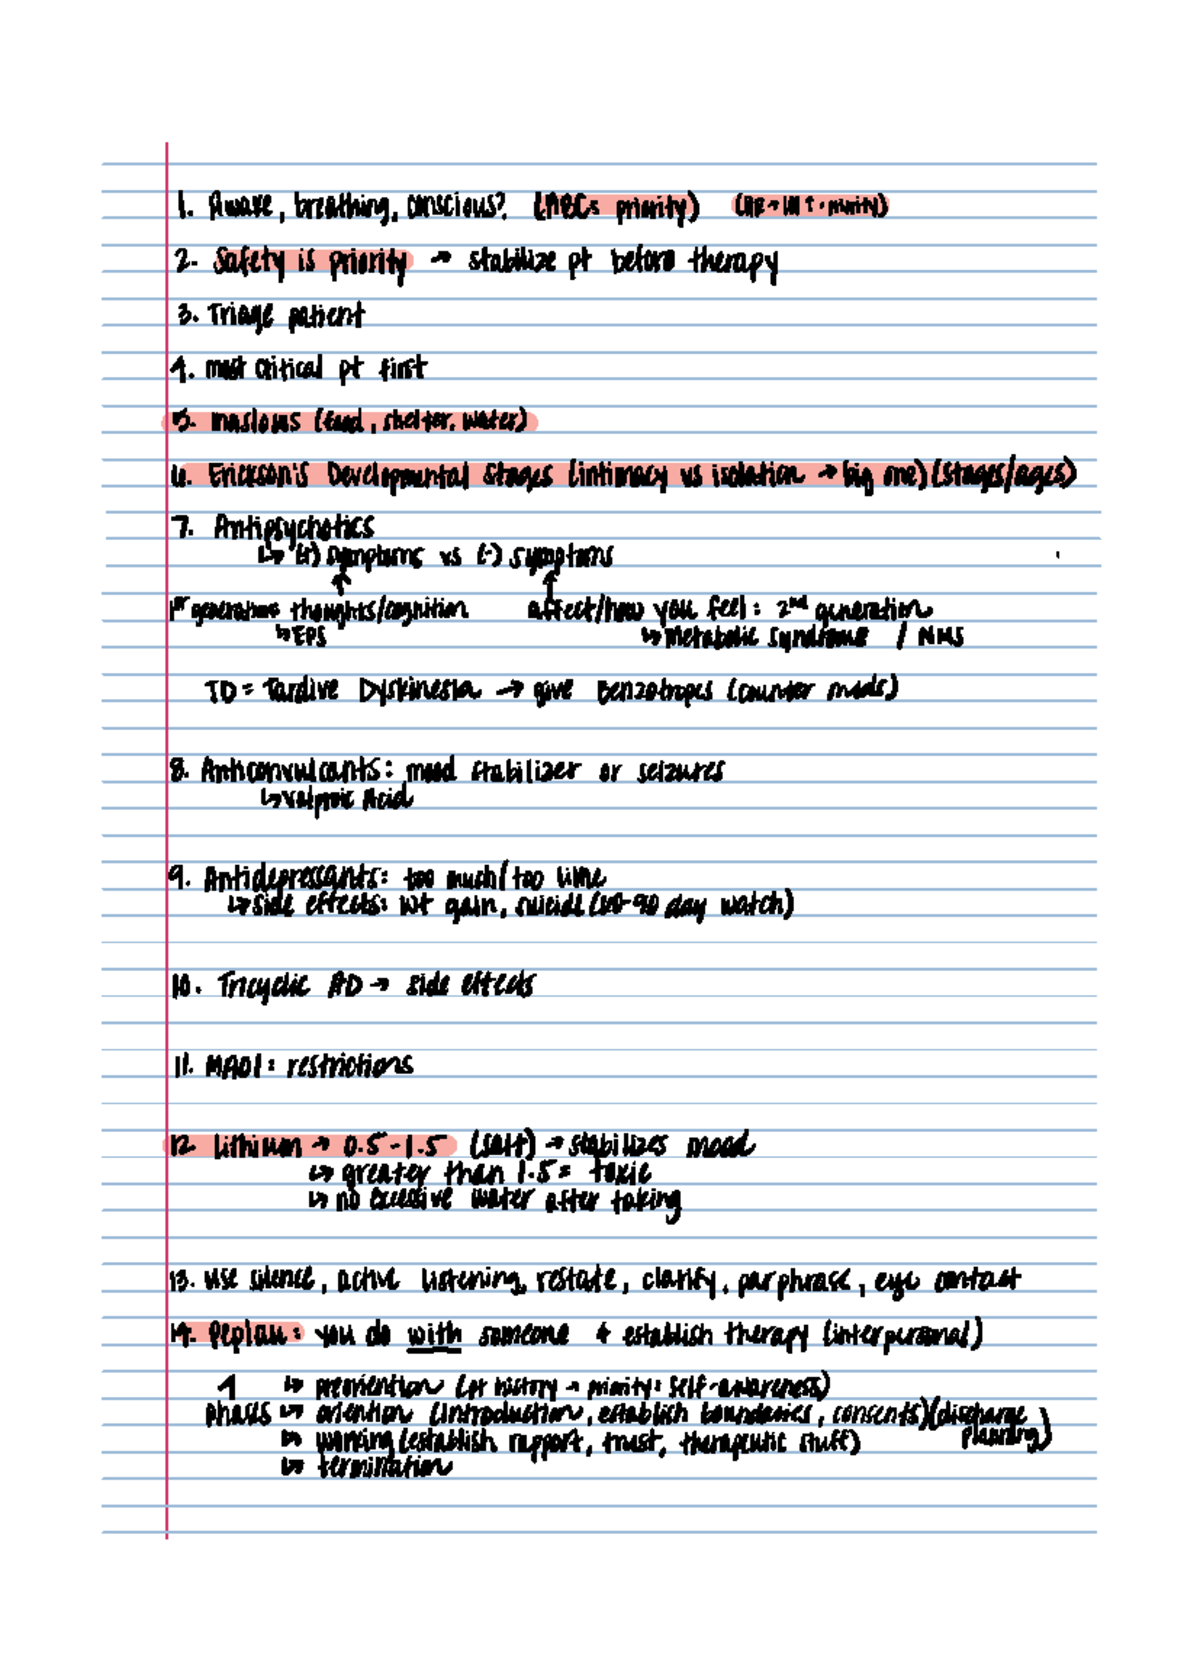 1. Awake, breathing, conscious? (ABCs priority)
2. Safety is priority → stabilize pt before therapy
3. Triage patient
4. most critical pt first
5. maslows (food, shelter, water)
6. Erickson's Developmental Stages (intimacy vs isolation → big one) (stages/ages)
7. Antipsychotics
↳ (+) symptoms vs (-) symptoms
1st generation: thoughts/cognition affect/how you feel: 2nd generation
↳ EPS ↳ Metabolic syndrome / NMS
TD = Tardive Dyskinesia → give Benzotropes (counter meds)
8. Anticonvulcants: mood stabilizer or seizures
↳ valproic Acid
9. Antidepressants: too much/too little
↳ side effects: wt gain, suicide ( day watch)
10. Tricyclic AD → side effects
11. MAOI: restrictions
12. Lithium → 0.5-1.5 (salt) → stabilizes mood
↳ greater than 1.5 = toxic
↳ no excessive water after taking
13. use silence, active listening, restate, clarify, parphrase, eye contact
14. Peplau: you do with someone + establish therapy (interpersonal)
4 ↳ preoriention (pt history → priority: self-awareness)
phases ↳ oriention (introduction, establish boundaries, consents) (discharge planning)
↳ working (establish rapport, trust, therapeutic stuff)
↳ termination